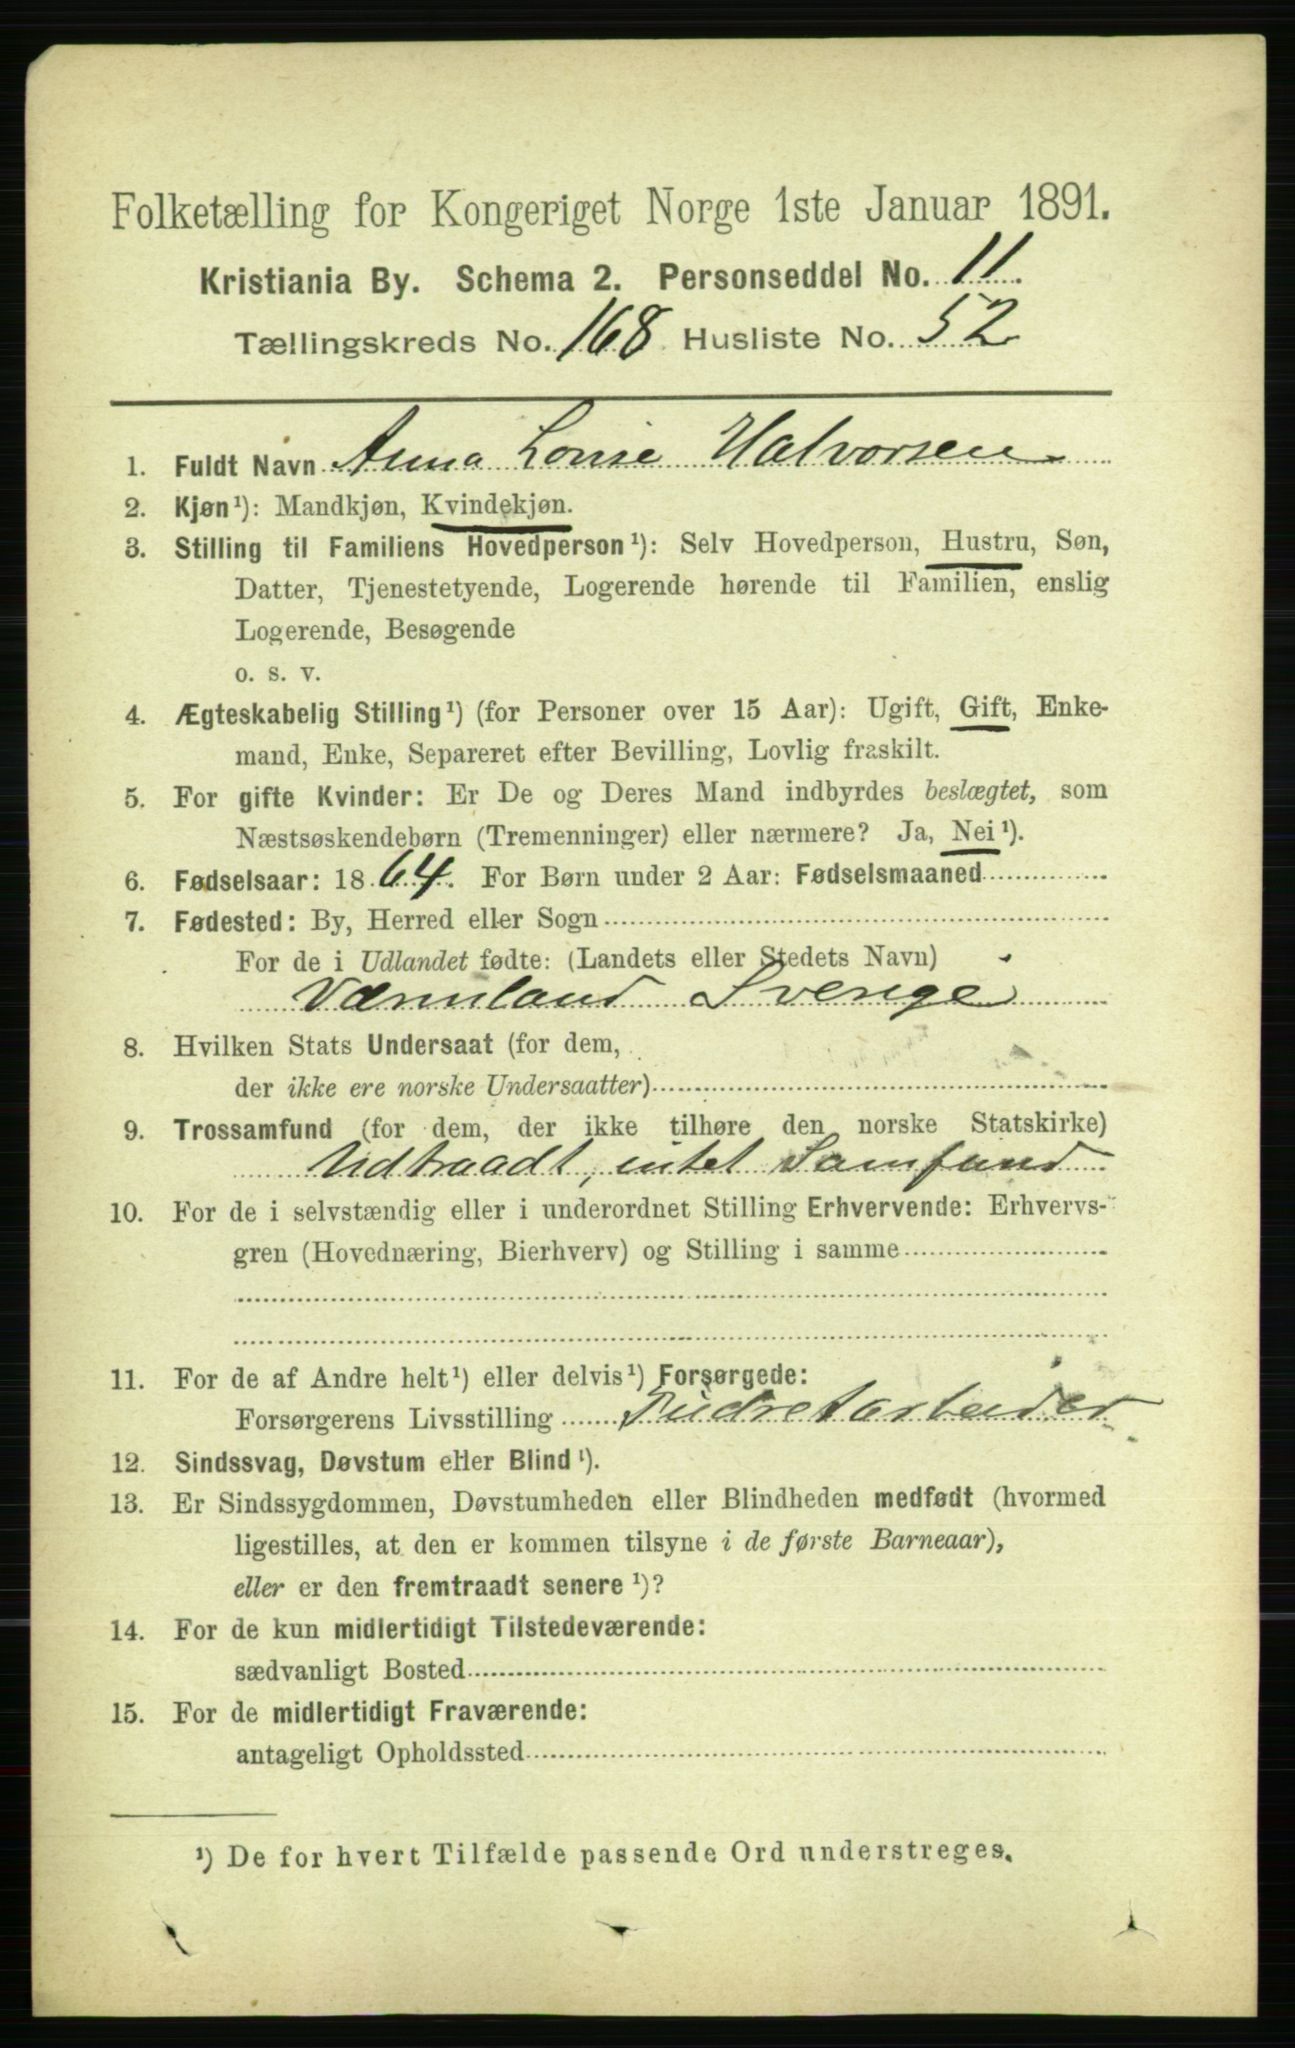 Folketælling for Kongeriget Norge 1ste Januar 1891.
Kristiania By. Schema 2. Personseddel No. 11
Tællingskreds No. 168 Husliste No. 52
1. Fuldt Navn Anna Louise Halvorsen
2. Kjøn¹): Mandkjøn, Kvindekjøn.
3. Stilling til Familiens Hovedperson¹): Selv Hovedperson, Hustru, Søn,
Datter, Tjenestetyende, Logerende hørende til Familien, enslig
Logerende, Besøgende
o. s. v.
4. Ægteskabelig Stilling¹) (for Personer over 15 Aar): Ugift, Gift, Enke-
mand, Enke, Separeret efter Bevilling, Lovlig fraskilt.
5. For gifte Kvinder: Er De og Deres Mand indbyrdes beslægtet, som
Næstsøskendebørn (Tremenninger) eller nærmere? Ja, Nei¹).
6. Fødselsaar: 1864. For Børn under 2 Aar: Fødselsmaaned
7. Fødested: By, Herred eller Sogn
For de i Udlandet fødte: (Landets eller Stedets Navn)
Værmland Sverige
8. Hvilken Stats Undersaat (for dem,
der ikke ere norske Undersaatter)
9. Trossamfund (for dem, der ikke tilhøre den norske Statskirke)
Udtraadt, intet Samfund
10. For de i selvstændig eller i underordnet Stilling Erhvervende: Erhvervs-
gren (Hovednæring, Bierhverv) og Stilling i samme
11. For de af Andre helt¹) eller delvis¹) Forsørgede:
Forsørgerens Livsstilling Pudretarbeider
12. Sindssvag, Døvstum eller Blind¹).
13. Er Sindssygdommen, Døvstumheden eller Blindheden medfødt (hvormed
ligestilles, at den er kommen tilsyne i de første Barneaar),
eller er den fremtraadt senere¹)?
14. For de kun midlertidigt Tilstedeværende:
sædvanligt Bosted
15. For de midlertidigt Fraværende:
antageligt Opholdssted
¹) De for hvert Tilfælde passende Ord understreges.